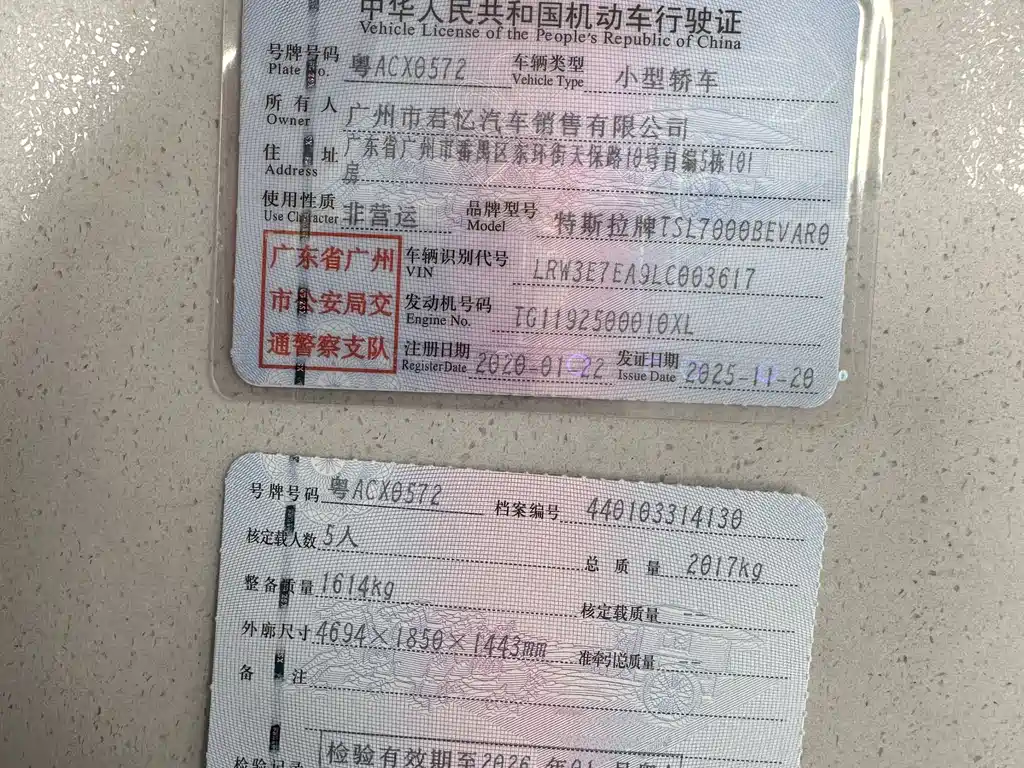 中华人民共和国机动车行驶证
Vehicle License of the People's Republic of China
号牌号码 粤ACX0572 车辆类型 小型轿车
Plate No. Vehicle Type
所有人 广州市君忆汽车销售有限公司
Owner
住址 广东省广州市番禺区东环街天保路10号自编5栋101
Address 房
使用性质 非营运 品牌型号 特斯拉牌TSL7000BEVAR0
Use Character Model
广东省广州
市公安局交
通警察支队
车辆识别代号 LRW3E7EA9LC003617
VIN
发动机号码 TG1192500010XL
Engine No.
注册日期 2020-01-22 发证日期 2025-11-20
Register Date Issue Date
号牌号码 粤ACX0572 档案编号 440103314130
核定载人数 5人 总质量 2017kg
整备质量 1614kg 核定载质量 --
外廓尺寸 4694×1850×1443mm 准牵引总质量 --
备注
检验记录 检验有效期至2026年01月